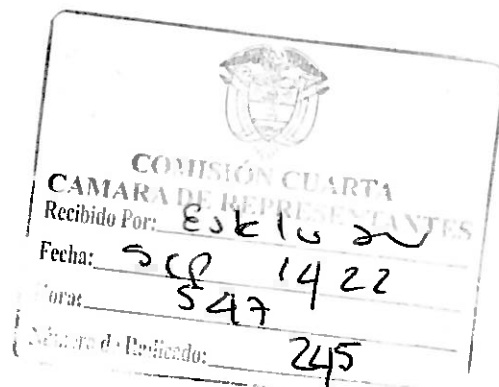 COMISIÓN CUARTA
CAMARA DE REPRESENTANTES
Recibido Por:
Fecha: Sep 14 22
Hora: 547
Número de Radicado: 245